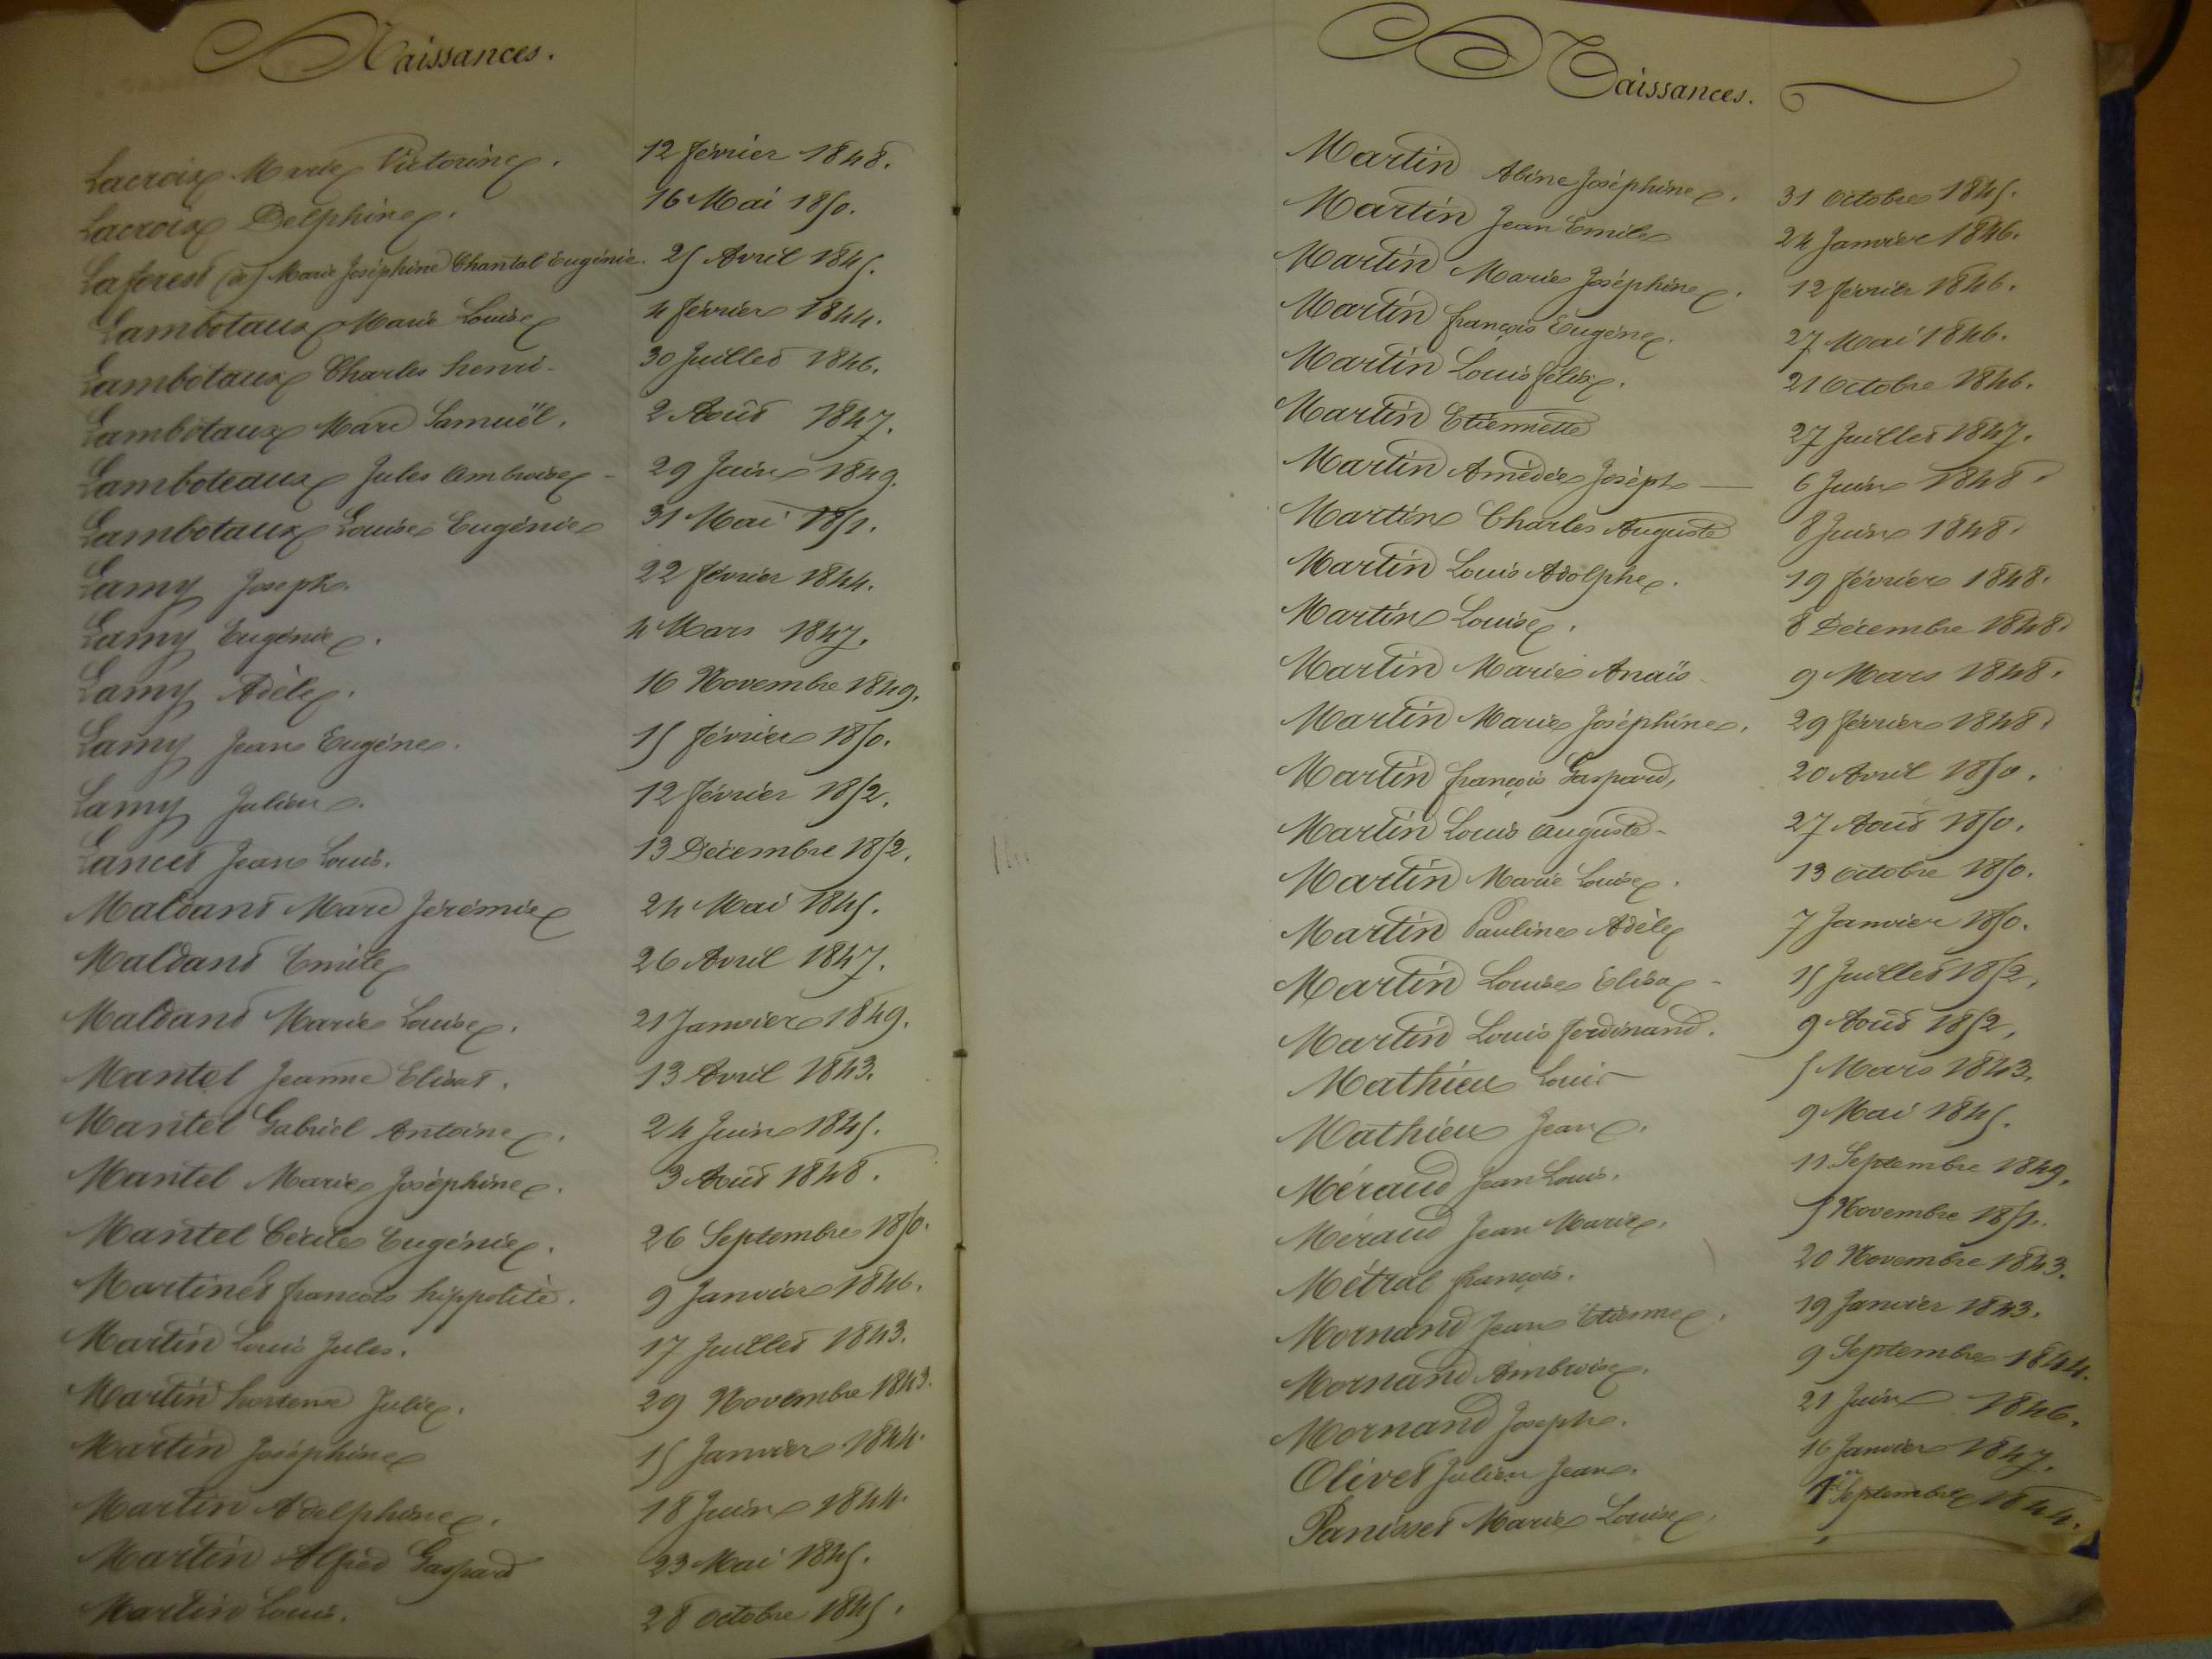 Naissances.
Lacroix Marie Victorine. 12 février 1848.
Lacroix Delphine. 16 Mai 1850.
Laforest (de) Marie Joséphine Chantal Eugénie. 25 Avril 1845.
Lambotaux Marie Louise 4 février 1844.
Lambotaux Charles henri - 30 Juillet 1846.
Lambotaux Marc Samuël. 2 Août 1847.
Lamboteaux Jules Ambroise - 29 Juin 1849.
Lambotaux Louise Eugénie 31 Mai 1851.
Lamy Joseph. 22 février 1844.
Lamy Eugénie. 4 Mars 1847.
Lamy Adèle. 16 Novembre 1849.
Lamy Jean Eugène. 15 février 1850.
Lamy Julien. 12 février 1852.
Lancet Jean Louis. 13 Décembre 1852.
Maldant Marc Jérémie 24 Mai 1845.
Maldant Emile 26 Avril 1847.
Maldant Marie Louise. 21 Janvier 1849.
Mantel Jeanne Elisat. 13 Avril 1843.
Mantel Gabriel Antoine. 24 Juin 1845.
Mantel Marie Joséphine. 3 Août 1848.
Mantel Cécile Eugénie. 26 Septembre 1850.
Martinet francois hippolite. 9 Janvier 1846.
Martin Louis Jules. 17 Juillet 1843.
Martin hortense Julie. 29 Novembre 1843.
Martin Joséphine 15 Janvier 1844.
Martin Adelphine. 18 Juin 1844.
Martin Alfred Gaspard 23 Mai 1845.
Martin Louis. 28 octobre 1845.
Naissances.
Martin Abine Joséphine. 31 octobre 1845.
Martin Jean Emile 24 Janvier 1846.
Martin Marie Joséphine. 12 février 1846.
Martin françois Eugène. 27 Mai 1846.
Martin Louis félix. 21 Octobre 1846.
Martin Etiennette 27 Juillet 1847.
Martin Amédée Joséph — 6 Juin 1848.
Martin Charles Auguste 8 Juin 1848.
Martin Louis Adolphe. 19 février 1848.
Martin Louise. 8 Décembre 1848.
Martin Marie Anaïs 9 Mars 1848.
Martin Marie Joséphine. 29 février 1848.
Martin françois Gaspard, 20 Avril 1850.
Martin Louis auguste - 27 Août 1850.
Martin Marie Louise. 13 octobre 1850.
Martin Pauline Adèle 7 Janvier 1850.
Martin Louise Elisa - 15 Juillet 1852.
Martin Louis ferdinand. 9 Août 1852.
Mathieu Louis 5 Mars 1843.
Mathieu Jean. 9 Mai 1845.
Méraud Jean Louis. 11 Septembre 1849.
Méraud Jean Marie. 5 Novembre 1851.
Métral françois. 20 Novembre 1843.
Mornand Jean Etienne. 19 Janvier 1843.
Mornand Ambroise. 9 Septembre 1844.
Mornand Joseph. 21 Juin 1846.
Olivet Julien Jean. 16 Janvier 1847.
Panisset Marie Louise. 1er Septembre 1844.